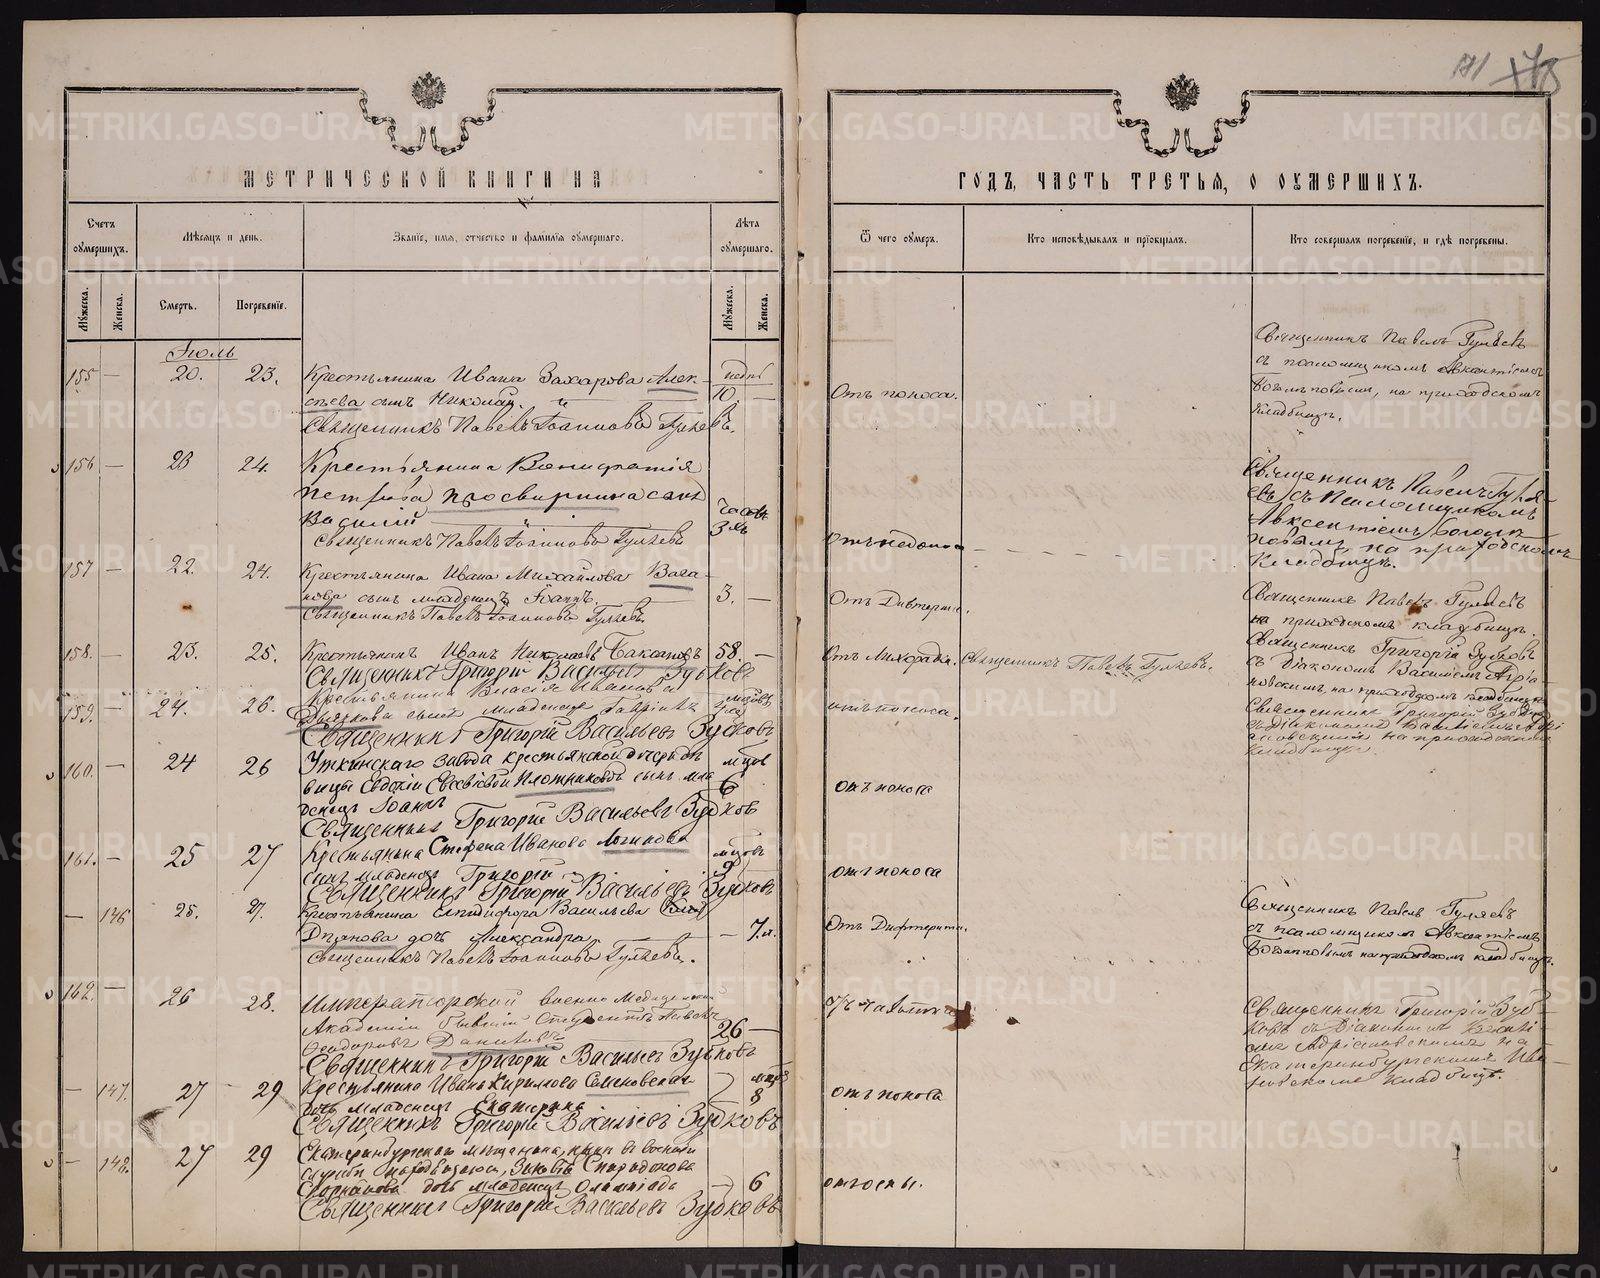 171
МЕТРИЧЕСКОЙ КНИГИ НА
ГОДЪ, ЧАСТЬ ТРЕТЬЯ, О ОУМЕРШИХЪ.
Счетъ оумершихъ.
Мѣсяцъ и день.
Званіе, имя, отчество и фамилія оумершаго.
Лѣта оумершаго.
Ѿ чего оумеръ.
Кто исповѣдывалъ и пріобщалъ.
Кто совершалъ погребеніе, и гдѣ погребены.
Мужеска.
Женска.
Смерть.
Погребеніе.
Мужеска.
Женска.
Іюль
155 — 20. 23. Крестьянина Ивана Захарова Алек-
сѣева сынъ Николай. 10. —
Священникъ Павелъ Іоанновъ Гуляевъ.
Отъ поноса.
Священникъ Павелъ Гуляевъ
съ псаломщикомъ Авксентіемъ
Богомъ, на приходскомъ
кладбищѣ.
156 — 23 24. Крестьянина Вонифатія
Петрова Просвирнина сынъ
Василій часовъ 3
Священникъ Павелъ Іоанновъ Гуляевъ
Священникъ Павелъ Гуля-
евъ съ Псаломщикомъ
Авксентіемъ
на приходскомъ
Кладбищѣ.
157 — 22. 24. Крестьянина Ивана Михайлова Вага-
нова сынъ младенецъ Іоаннъ. 3. —
Священникъ Павелъ Іоанновъ Гуляевъ.
Отъ Дифтерита.
Священникъ Павелъ Гуляевъ
на приходскомъ кладбищѣ.
158. — 23. 25. Крестьянинъ Иванъ Николаевъ 58. —
Священникъ Григорій Васильевъ Зубковъ
Отъ Лихорадки. Священникъ Павелъ Гуляевъ.
Священникъ Григорій Зубковъ
съ Діакономъ Василіемъ Адріа-
новскимъ, на приходскомъ кладбищѣ
159. — 24. 26. Крестьянина Власія Иванова
сынъ младенецъ Гавріилъ
Священникъ Григорій Васильевъ Зубковъ
отъ поноса.
Священникъ Григорій Зубковъ
съ Діакономъ Василіемъ Адрі
ановскимъ на приходскомъ
кладбищѣ.
160. — 24 26 Уткинскаго завода крестьянской дочери дѣ
вицы Евдокіи Плотниковой сынъ мла
денецъ Іоаннъ 6
Священникъ Григорій Васильевъ Зубков
отъ поноса
161. — 25 27 Крестьянина Стефана Иванова Логинова мцовъ
сынъ младенецъ Григорій 9
Священникъ Григорій Васильевъ Зубковъ
отъ поноса
— 146 25. 27. Крестьянина Васильева
Дпянова дочь Александра — 7.
Священникъ Павелъ Іоанновъ Гуляевъ.
Отъ Дифтерита.
Священникъ Павелъ Гуляевъ
съ псаломщикомъ Авксентіемъ
на приходскомъ кладбищѣ.
162. — 26 28. Императорской военно Медицинской
Академіи бывшій Студентъ Павелъ
Феодоровъ Даниловъ 26 —
Священникъ Григорій Васильевъ Зубковъ
Отъ Чахотки
Священникъ Григорій Зуб-
ковъ съ Діакономъ Василі-
емъ Адріановскимъ на
Екатеринбургскомъ Ива-
новскомъ кладбищѣ.
— 147. 27 — 29 Крестьянина Ивана Кирилова Семеновскаго
дочь младенецъ Екатерина 8
Священникъ Григорій Васильевъ Зубковъ
отъ поноса
— 148. 27 29 Екатеринбургскаго мѣщанина, нынѣ въ военной
службѣ находящагося, Спиридонова
дочь младенецъ Олимпіада — 6
Священникъ Григорій Васильевъ Зубковъ
отъ оспы.
METRIKI.GASO-URAL.RU